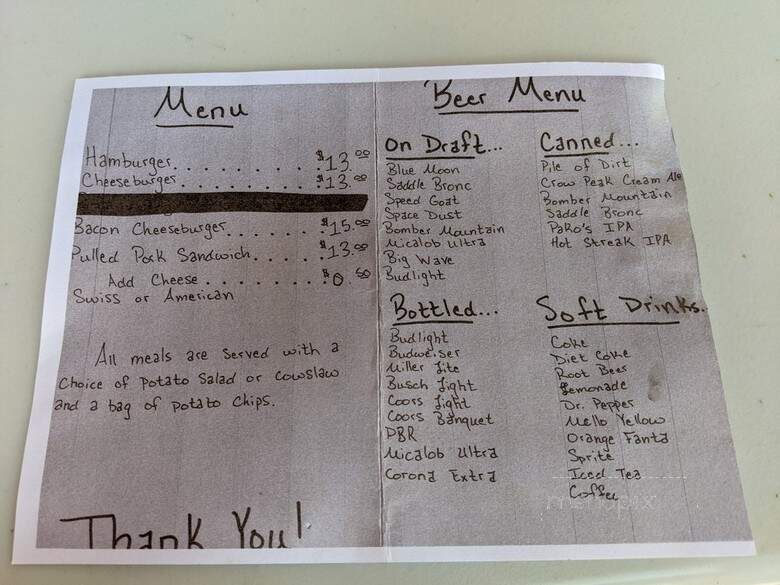 Menu
Hamburger. . . . . . . . . . $13.00
Cheeseburger . . . . . . . . $13.00
Bacon Cheeseburger. . . . . . $15.00
Pulled Pork Sandwich. . . . . $13.00
Add Cheese . . . . . . . $0.50
Swiss or American
All meals are served with a
Choice of Potato Salad or Cowslaw
and a bag of potato chips.
Thank You!
Beer Menu
On Draft...
Blue Moon
Saddle Bronc
Speed Goat
Space Dust
Bomber Mountain
Micalob Ultra
Big Wave
Budlight
Canned...
Pile of Dirt
Crow Peak Cream Ale
Bomber Mountain
Saddle Bronc
Pako's IPA
Hot Streak IPA
Bottled...
Budlight
Budweiser
Miller Lite
Busch Light
Coors Light
Coors Banquet
PBR
Micalob Ultra
Corona Extra
Soft Drinks..
Coke
Diet Coke
Root Beer
Lemonade
Dr. Pepper
Mello Yellow
Orange Fanta
Sprite
Iced Tea
Coffee
menupix